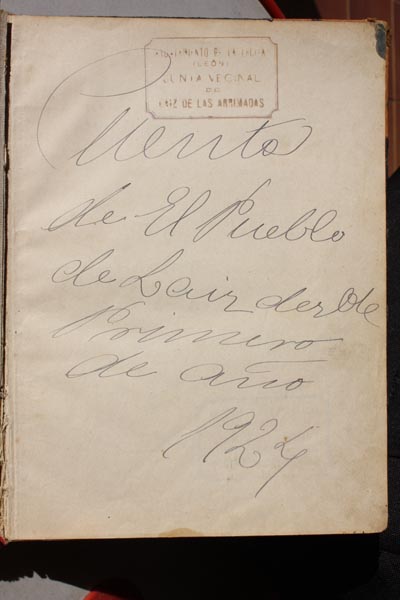 AYUNTAMIENTO DE LA ERCINA
(LEÓN)
JUNTA VECINAL
DE
LAIZ DE LAS ARRIMADAS
Cuenta
de El Pueblo
de Laiz desde
Primero
de año
1924